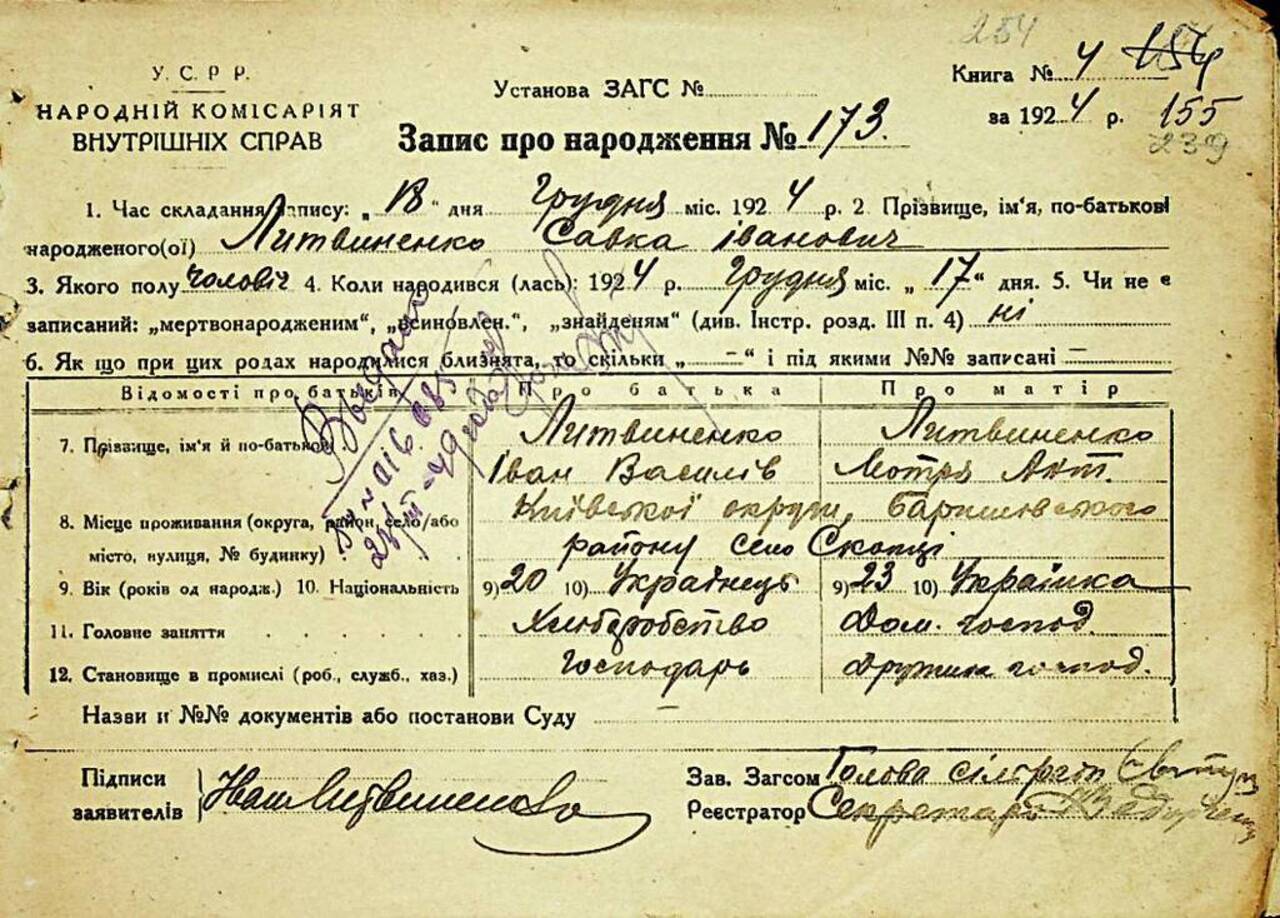 254
У.С.Р.Р.
НАРОДНІЙ КОМІСАРІЯТ
ВНУТРІШНІХ СПРАВ
Установа ЗАГС №
Книга № 4 154
за 1924 р. 155
239
Запис про народження № 173.
1. Час складання запису: „18" дня Грудня міс. 1924 р. 2 Прізвище, ім'я, по-батькові
народженого(ої) Литвиненко Савка Іванович
3. Якого полу чоловіч 4. Коли народився (лась): 1924 р. Грудня міс. „17" дня. 5. Чи не є
записаний: „мертвонародженим", „всиновлен.", „знайденям" (див. Інстр. розд. III п. 4) ні
6. Як що при цих родах народилися близнята, то скільки „—" і під якими №№ записані —
Відомості про батьків Про батька Про матір
7. Прізвище, ім'я й по-батькові Литвиненко Литвиненко
Іван Василів Мотря Ант.
8. Місце проживання (округа, район, село/або Київської округи, Баришевського
місто, вулиця, № будинку) району село Скопці
9. Вік (років од народж.) 10. Національність 9) 20 10) Українець 9) 23 10) Українка
11. Головне заняття Хліборобство Дом. господ.
12. Становище в промислі (роб., служб., хаз.) Господарь Дружина господ.
Назви и №№ документів або постанови Суду —
Підписи
заявителів Иван Литвиненко
Зав. Загсом Голова сільради
Реєстратор Секретарь